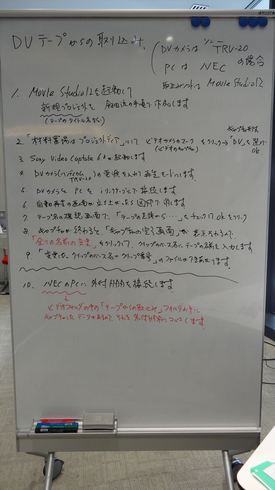 DVテープからの取り込み
DVカメラは ソニー TRV-20
PCは NEC
取込みソフトは Movie Studio12
1. Movie Studio12を起動して
新規プロジェクトを 作成します
(テープのタイトル名)
2 「材料置場はプロジェクトメディア」 ビデオカメラのマークをクリック→「DV」を選んで OK
3 Sony Video Capture 6.0が起動します
4 DVカメラ TRV-20 の電源を入れて再生モードにします
5 DVカメラとPCを iリンクケーブルで接続します
6 自動再生の画面が出ましたら 閉じます
7 テープ名の確認画面で、「テープを を チェックしOKをクリック
8 キャプチャが終わると「キャプチャの完了画面」が表示されるので
「全ての名前の変更」をクリックして、クリップのベース名にテープの名前を入力します
9 「変更したクリップのベース名+クリップ番号」のファイルができます
10. NECのPCに外付HDDを接続します
ビデオフォルダの中の「テープからの取込み」フォルダの中に
キャプチャしたデータがあるので それを外付HDDにコピーします